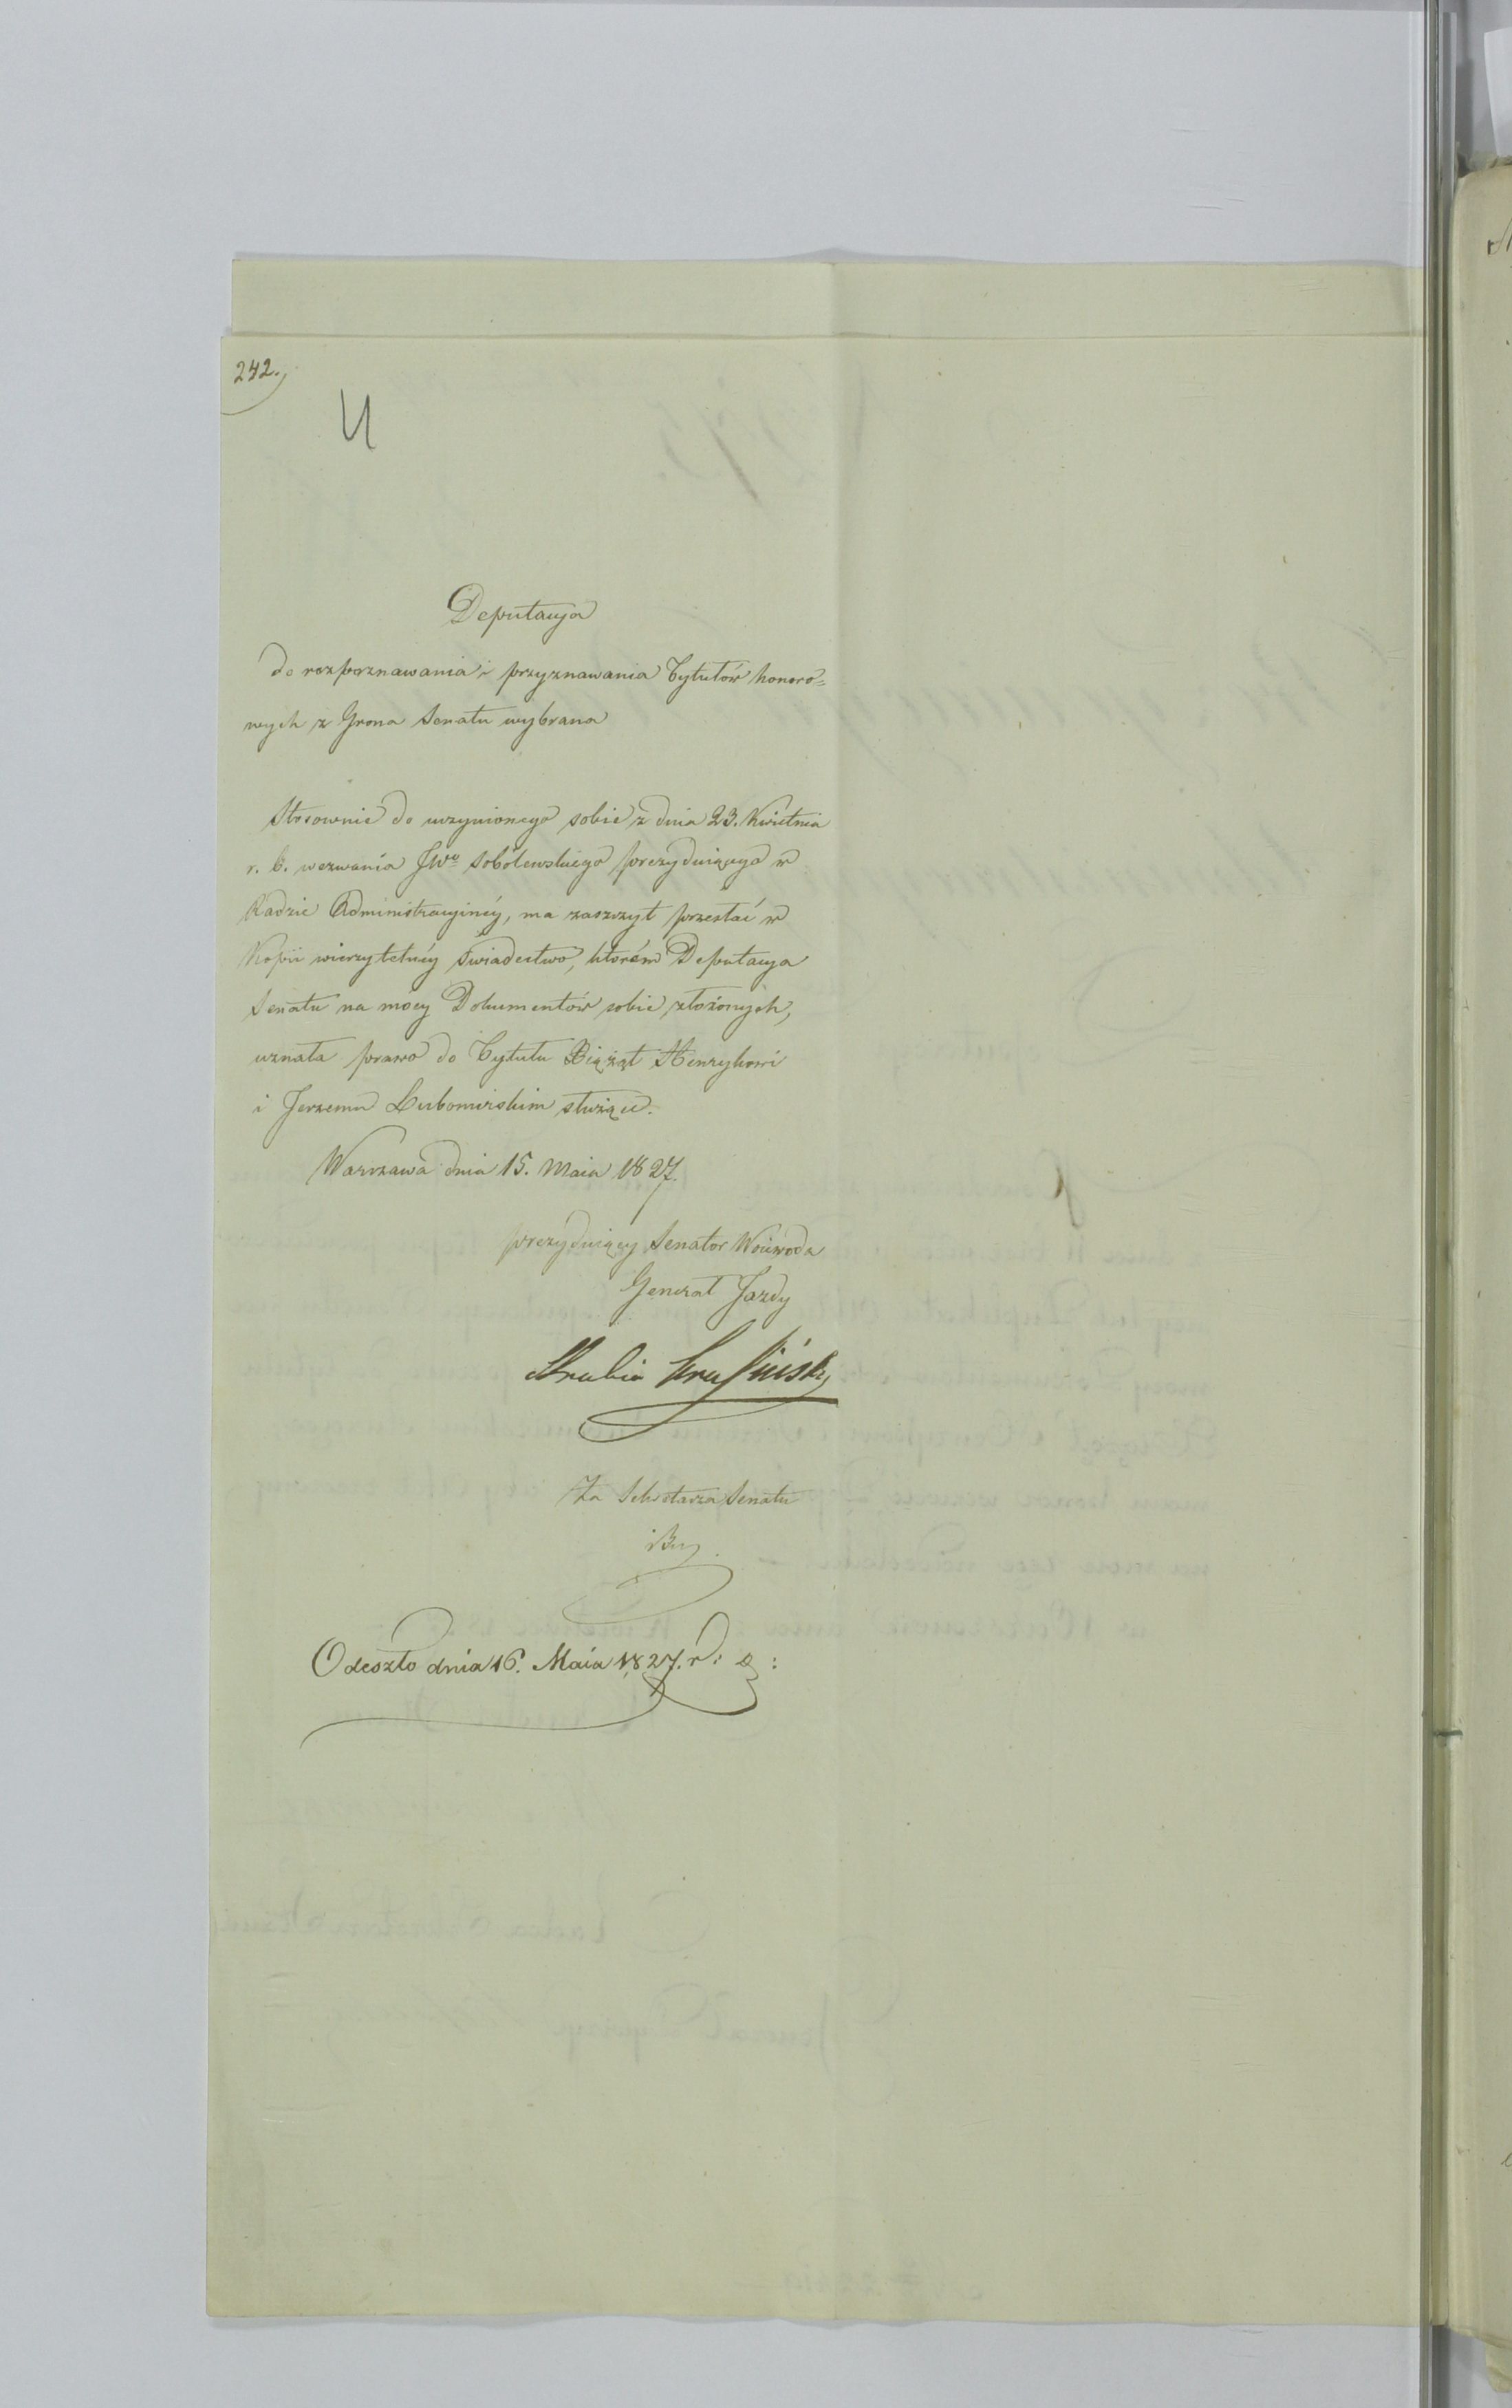 242.
Deputacya
do rozpoznawania i przyznawania Tytułów honoro=
wych z Grona Senatu wybrana
Stosownie do uczynionego sobie z dnia 23. Kwietnia
r. b. wezwania JWo Sobolewskiego prezyduiącego w
Radzie Administracyinéy, ma zaszczyt przesłać w
Kopii wierzytelnéy świadectwo, którém Deputacya
Senatu na mocy Dokumentów sobie złożonych,
uznała prawo do Tytułu Xiążąt Henrykowi
i Jerzemu Lubomirskim służące.
Warszawa dnia 15. Maia 1827.
prezyduiący Senator Woiewoda
Generał Jazdy
Hrabia Krasiński
Za Sekretarza Senatu
Odeszło dnia 16. Maia 1827. r: